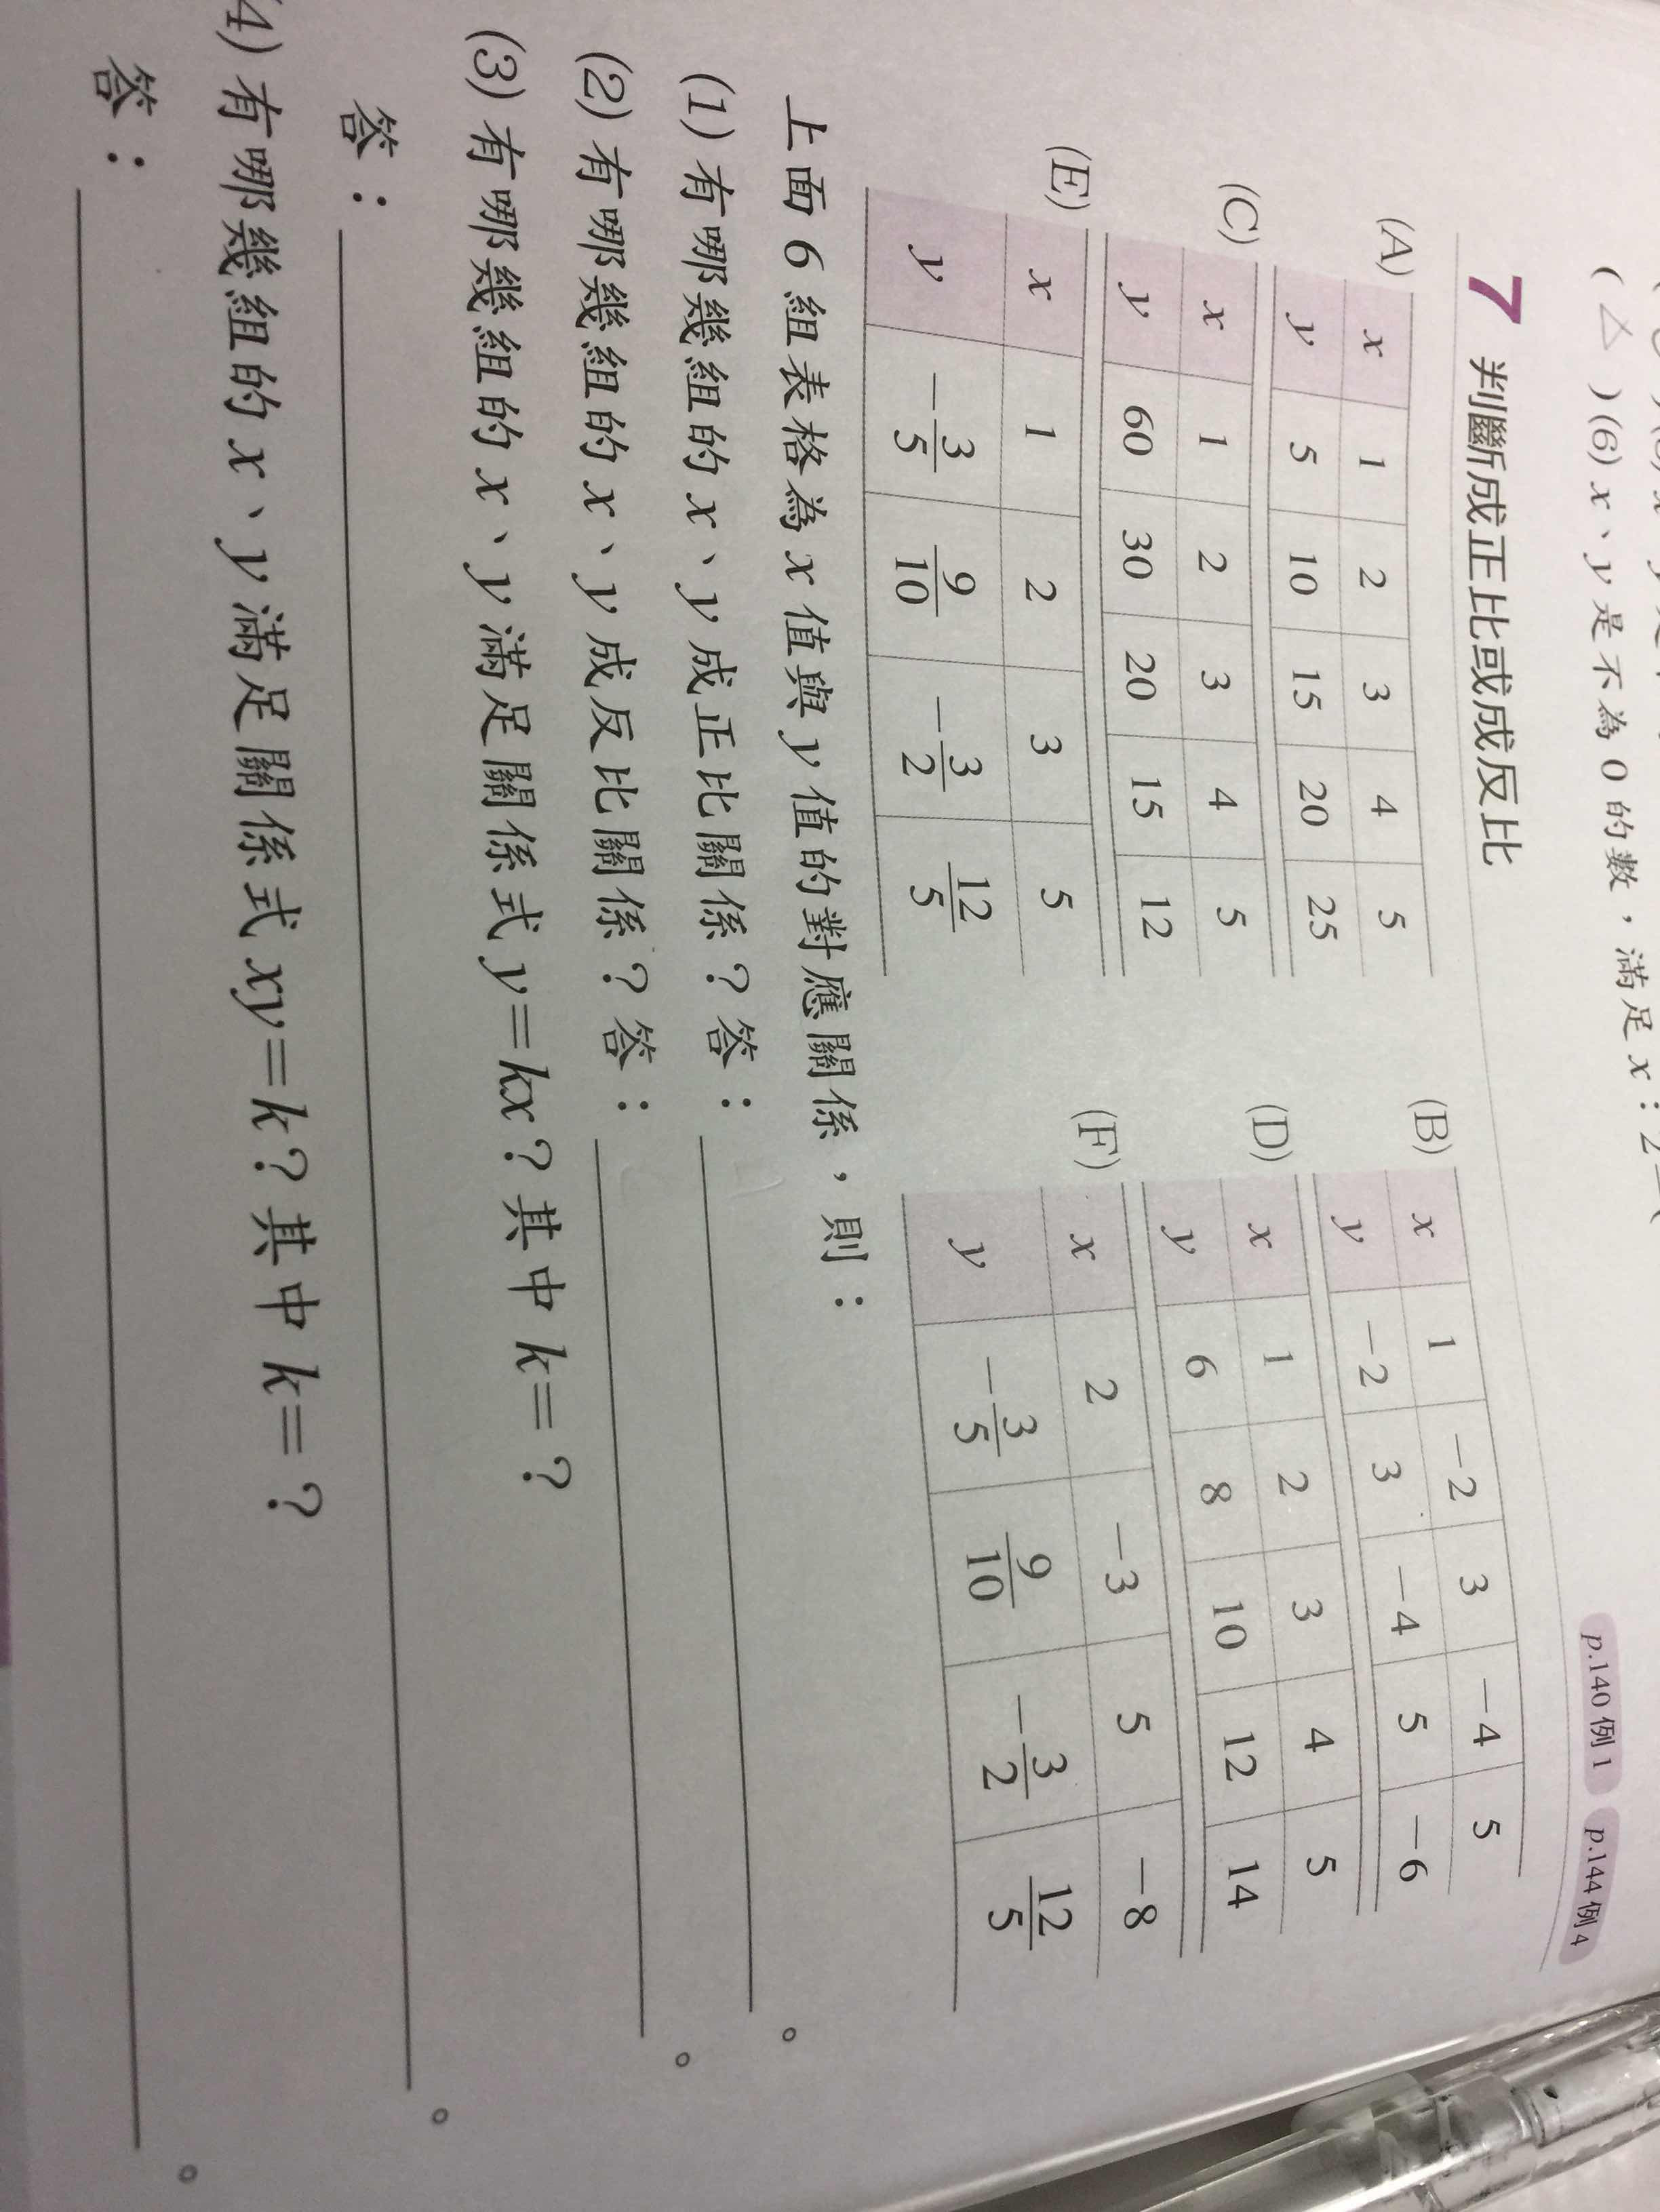 ( △ )(6) x、y 是不為 0 的數，滿足 x：2＝
7 判斷成正比或成反比 p.140 例 1 p.144 例 4
(A) x 1 2 3 4 5
y 5 10 15 20 25
(B) x 1 －2 3 －4 5
y －2 3 －4 5 －6
(C) x 1 2 3 4 5
y 60 30 20 15 12
(D) x 1 2 3 4 5
y 6 8 10 12 14
(E) x 1 2 3 5
y －3/5 9/10 －3/2 12/5
(F) x 2 －3 5 －8
y －3/5 9/10 －3/2 12/5
上面 6 組表格為 x 值與 y 值的對應關係，則：
(1) 有哪幾組的 x、y 成正比關係？答： 。
(2) 有哪幾組的 x、y 成反比關係？答： 。
(3) 有哪幾組的 x、y 滿足關係式 y＝kx？其中 k＝？
答： 。
4) 有哪幾組的 x、y 滿足關係式 xy＝k？其中 k＝？
答： 。